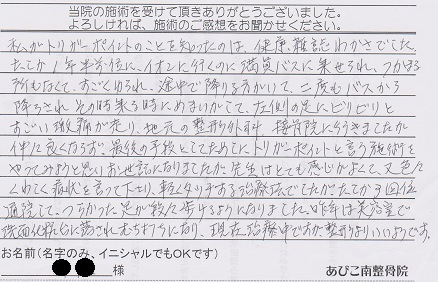 当院の施術を受けて頂きありがとうございました。
よろしければ、施術のご感想をお聞かせください。
私がトリガーポイントのことを知ったのは、健康雑誌わかさでした。
たしか1年半位前に、イオンに行くのに満員バスに乗せられ、つかまる
所もなくて、すごくゆられ、途中で降りる方がいて、二度もバスから
降ろされ その時乗る時にめまいがして、左側の足にビリビリと
すごい激痛が走り、地元の整形外科 接骨院に行きましたが
一向に良くならず、最後の手段としてためにトリガーポイントと言う施術を
やってみようと思いお世話になりましたが、先生はとても感じがよくて、又色々
くわしく症状を言って下さり、転々する治療でしたがたしか3回位
通院して、つらかった足が段々歩けるようになりました。昨年は美容室で
洗面化粧台に落されむちうちになり、現在治療中ですが整形よりいいようです。
お名前(名字のみ、イニシャルでもOKです)
様
あびこ南整骨院